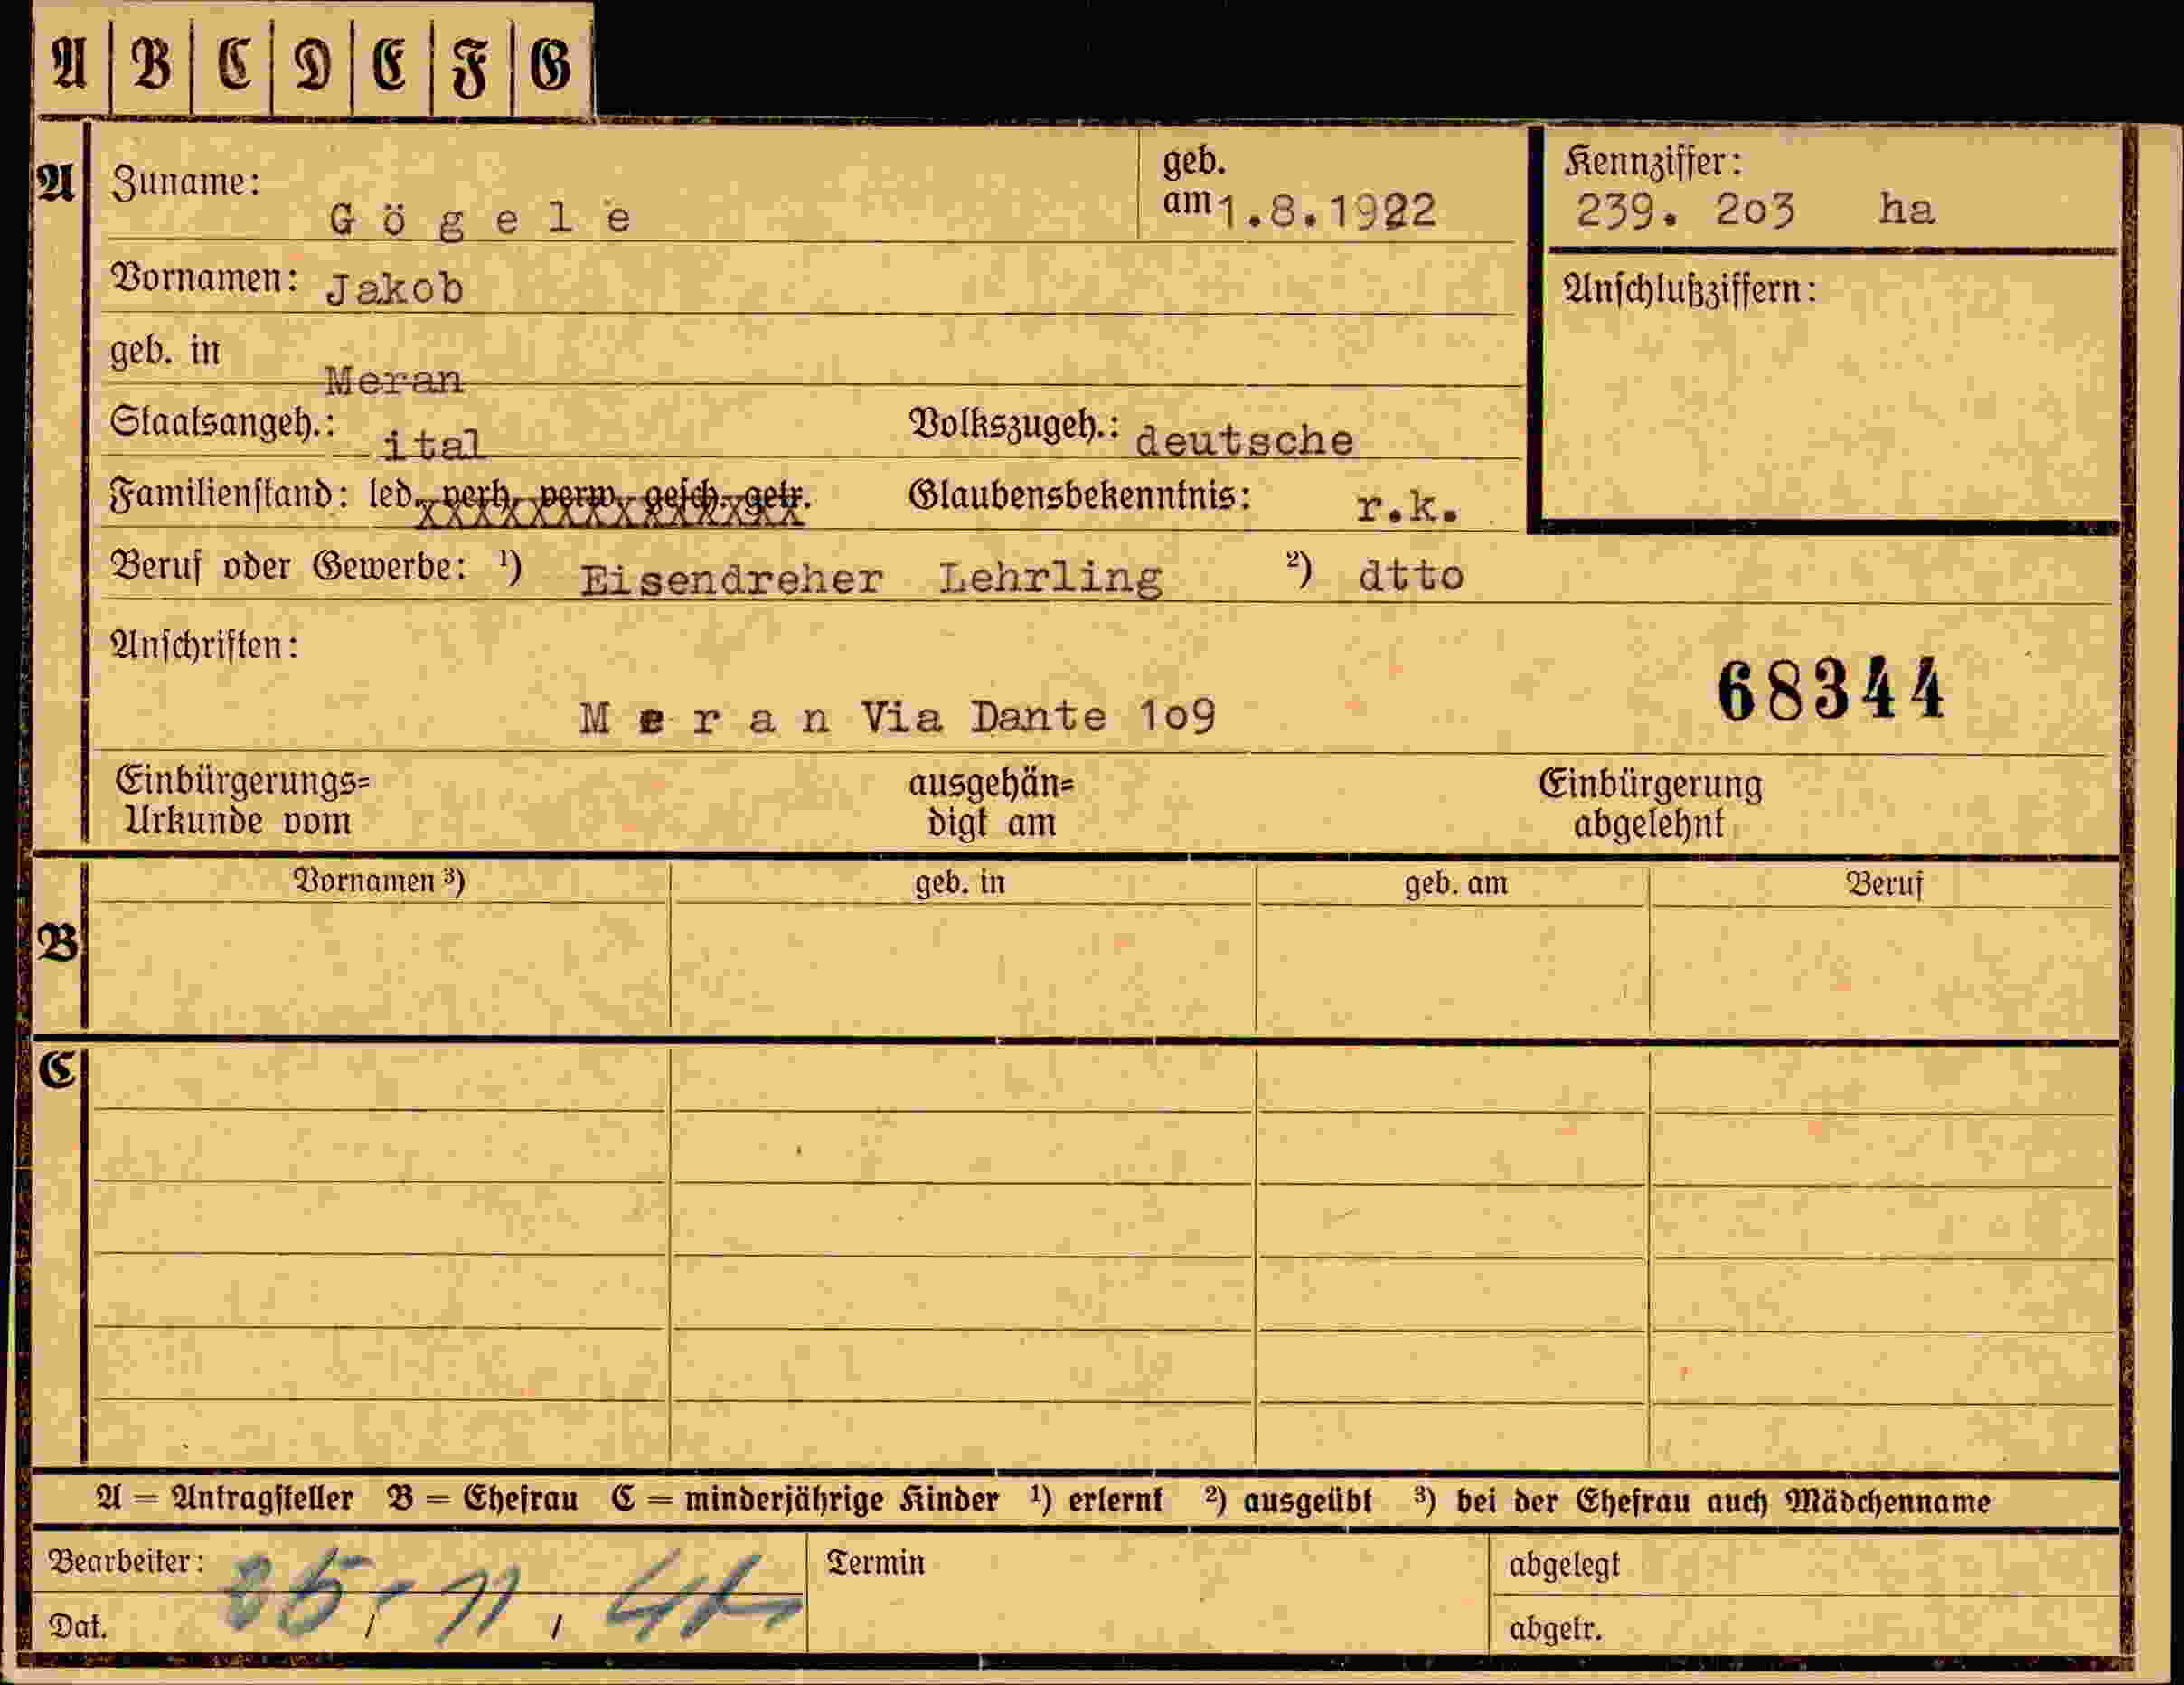 A B C D E F G
A Zuname: Gögele geb. am 1.8.1922 Kennziffer: 239. 2o3 ha
Vornamen: Jakob Anschlußziffern:
geb. in Meran
Staatsangeh.: ital Volkszugeh.: deutsche
Familienstand: led. verh. verw. gesch. getr. Glaubensbekenntnis: r.k.
Beruf oder Gewerbe: ¹) Eisendreher Lehrling ²) dtto
Anschriften:
68344
Meran Via Dante 1o9
Einbürgerungs= ausgehän= Einbürgerung
Urkunde vom digt am abgelehnt
Vornamen ³) geb. in geb. am Beruf
B
C
A = Antragsteller B = Ehefrau C = minderjährige Kinder ¹) erlernt ²) ausgeübt ³) bei der Ehefrau auch Mädchenname
Bearbeiter: Termin abgelegt
Dat. abgetr.